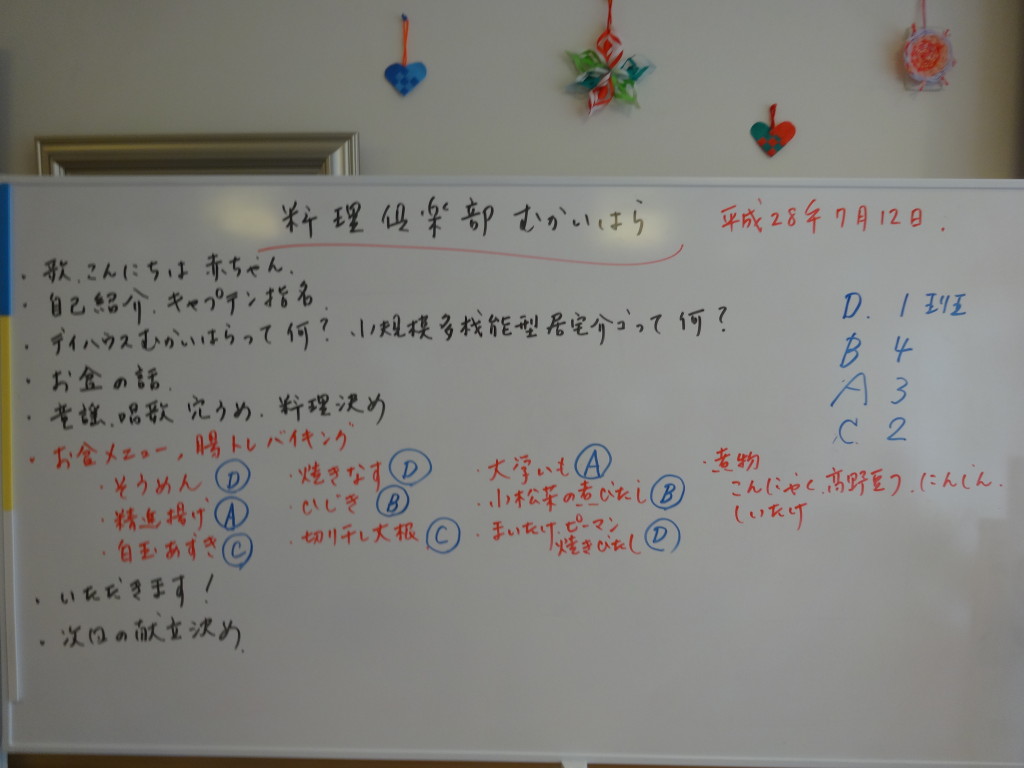 料理倶楽部 むかいはら 平成28年7月12日.
・歌、こんにちは 赤ちゃん、
・自己紹介、キャプテン指名
・デイハウスむかいはらって何? 小規模多機能型居宅介ゴって何?
・お盆の話、
・童謡、唱歌 穴うめ、料理決め
D. 1班
B 4
A 3
C 2
・お盆メニュー、腸トレバイキング
・そうめん D ・焼きなす D ・大学いも A ・煮物
・精進揚げ A ・ひじき B ・小松菜の煮びたし B こんにゃく、高野豆フ、にんじん、
・白玉あずき C ・切り干し大根 C ・まいたけピーマン しいたけ
焼きびたし D
・いただきます!
・次回の献立決め、